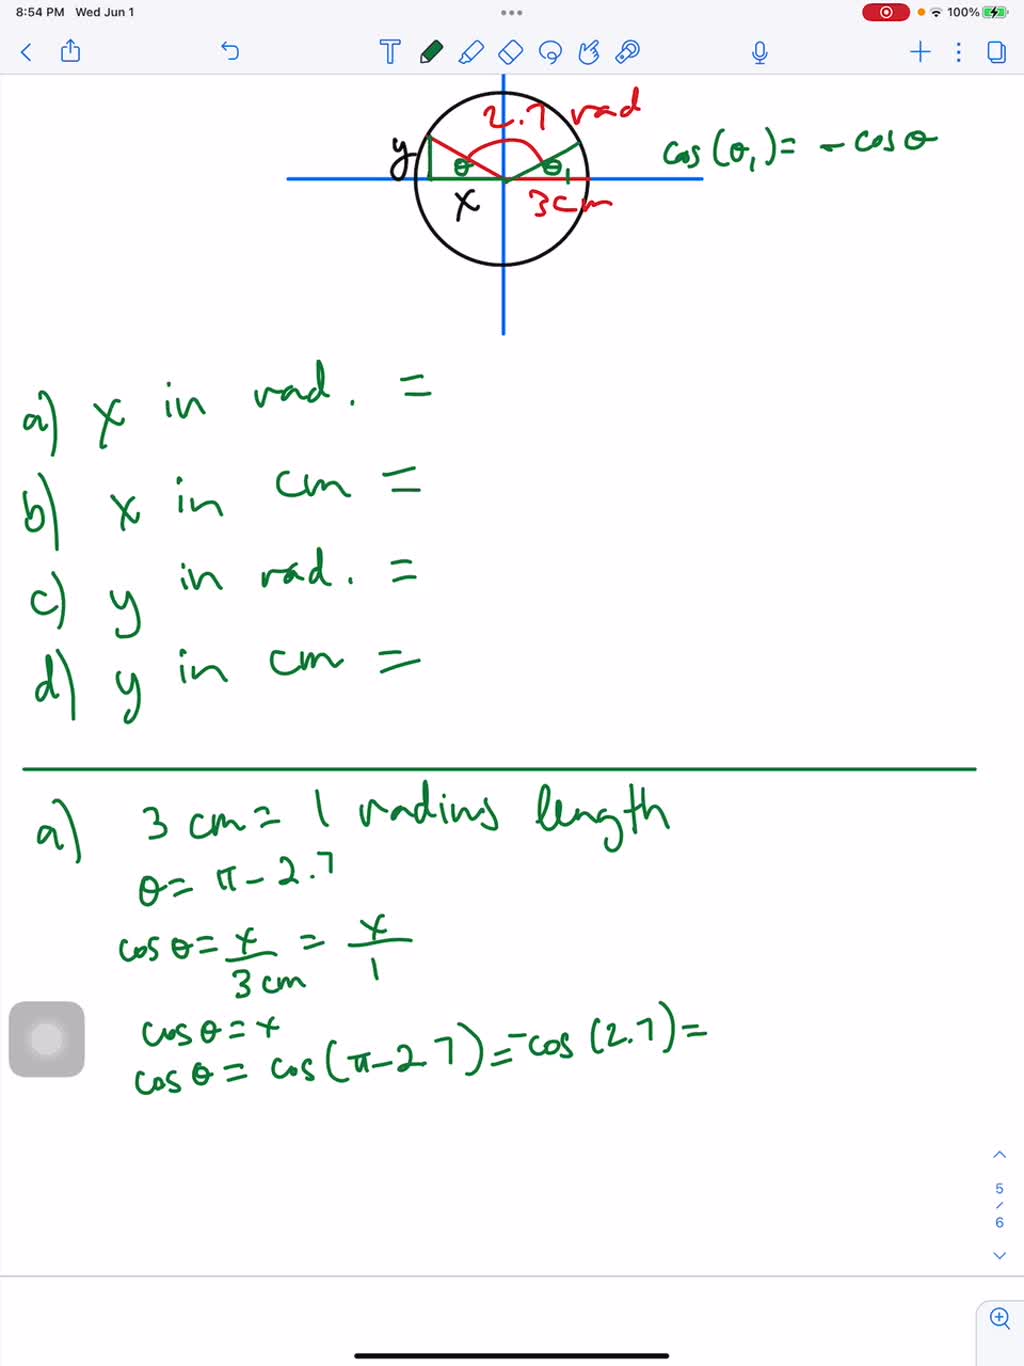 8:54 PM Wed Jun 1
100%
T
2.7 rad
y
θ θ₁
cos(θ₁) = - cos θ
x 3cm
a) x in rad. =
b) x in cm =
c) y in rad. =
d) y in cm =
a) 3 cm = 1 radius length
θ = π - 2.7
cos θ = x/3 cm = x/1
cos θ = x
cos θ = cos(π - 2.7) = -cos(2.7) =
5
/
6